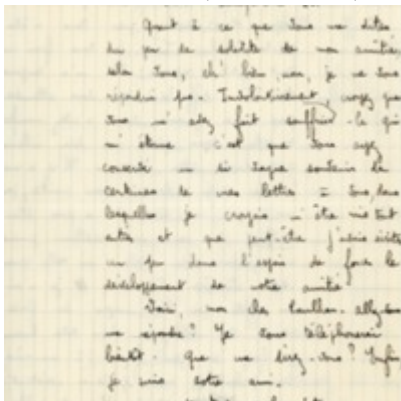 Quant à ce que vous me dites
du peu de solidité de mon amitié,
selon vous, eh bien, non, je ne vous
répondrai pas. Indubitablement, croyez que
vous m'avez fait souffrir. Ce qui
m'étonne c'est que vous ayez
conservé un si vague souvenir de
certaines de mes lettres à vous, dans
lesquelles je croyais m'être mis tout
entier et que peut-être j'avais écrites
un peu dans l'espoir de forcer le
développement de votre amitié
Voici, mon cher Paulhan. allez-vous
me répondre? Je vous téléphonerai
bientôt. Que me direz-vous? Enfin,
je suis votre ami.